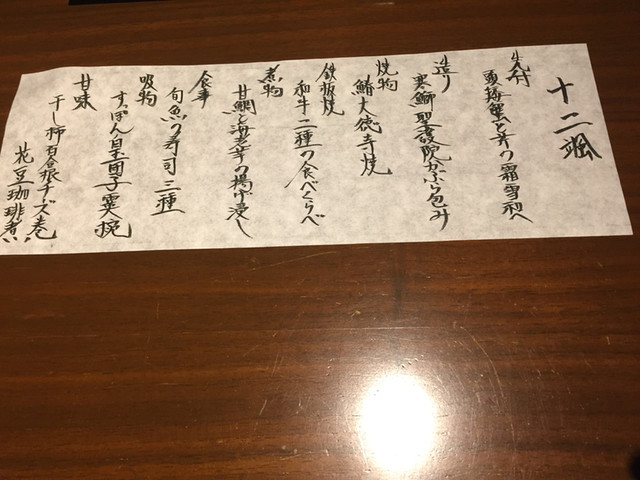 十二颯
先付
頭捧蟹と芹の霜雪和へ
造り
寒鰤聖護院かぶら包み
焼物
鰆大徳寺焼
鉄板焼
和牛二種の食べくらべ
煮物
甘鯛と海老芋の揚げ浸し
食事
旬魚の寿司三種
吸物
すっぽん玉団子糞椀
甘味
干し柿百合根チーズ巻
花豆珈琲煮